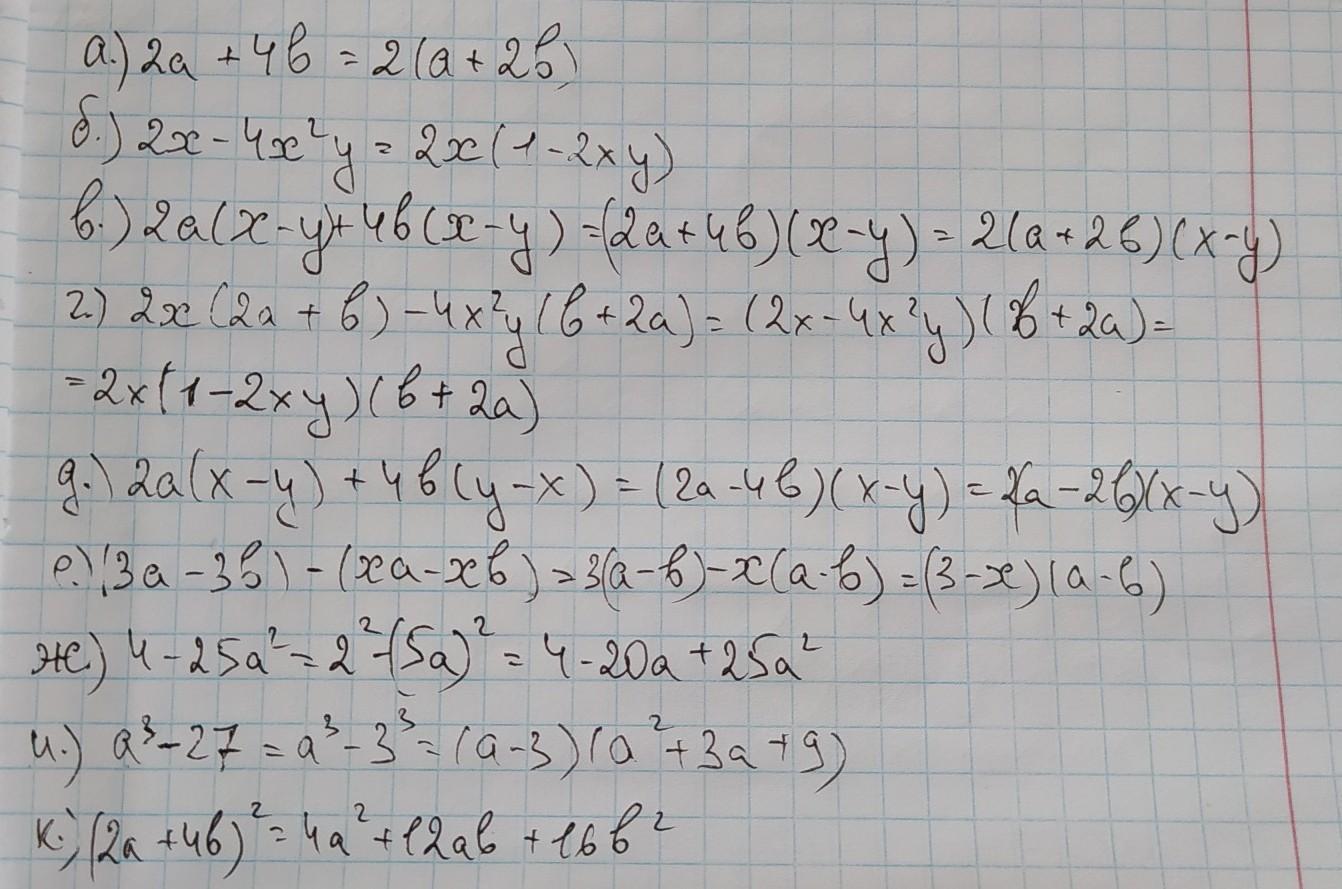 а.) 2a + 4b = 2(a + 2b)
б.) 2x - 4x²y = 2x(1 - 2xy)
в.) 2a(x - y) + 4b(x - y) = (2a + 4b)(x - y) = 2(a + 2b)(x - y)
г.) 2x(2a + b) - 4x²y(b + 2a) = (2x - 4x²y)(b + 2a) =
= 2x(1 - 2xy)(b + 2a)
д.) 2a(x - y) + 4b(y - x) = (2a - 4b)(x - y) = 2(a - 2b)(x - y)
е.) (3a - 3b) - (xa - xb) = 3(a - b) - x(a - b) = (3 - x)(a - b)
ж.) 4 - 25a² = 2² - (5a)² = 4 - 20a + 25a²
и.) a³ - 27 = a³ - 3³ = (a - 3)(a² + 3a + 9)
к.) (2a + 4b)² = 4a² + 12ab + 16b²